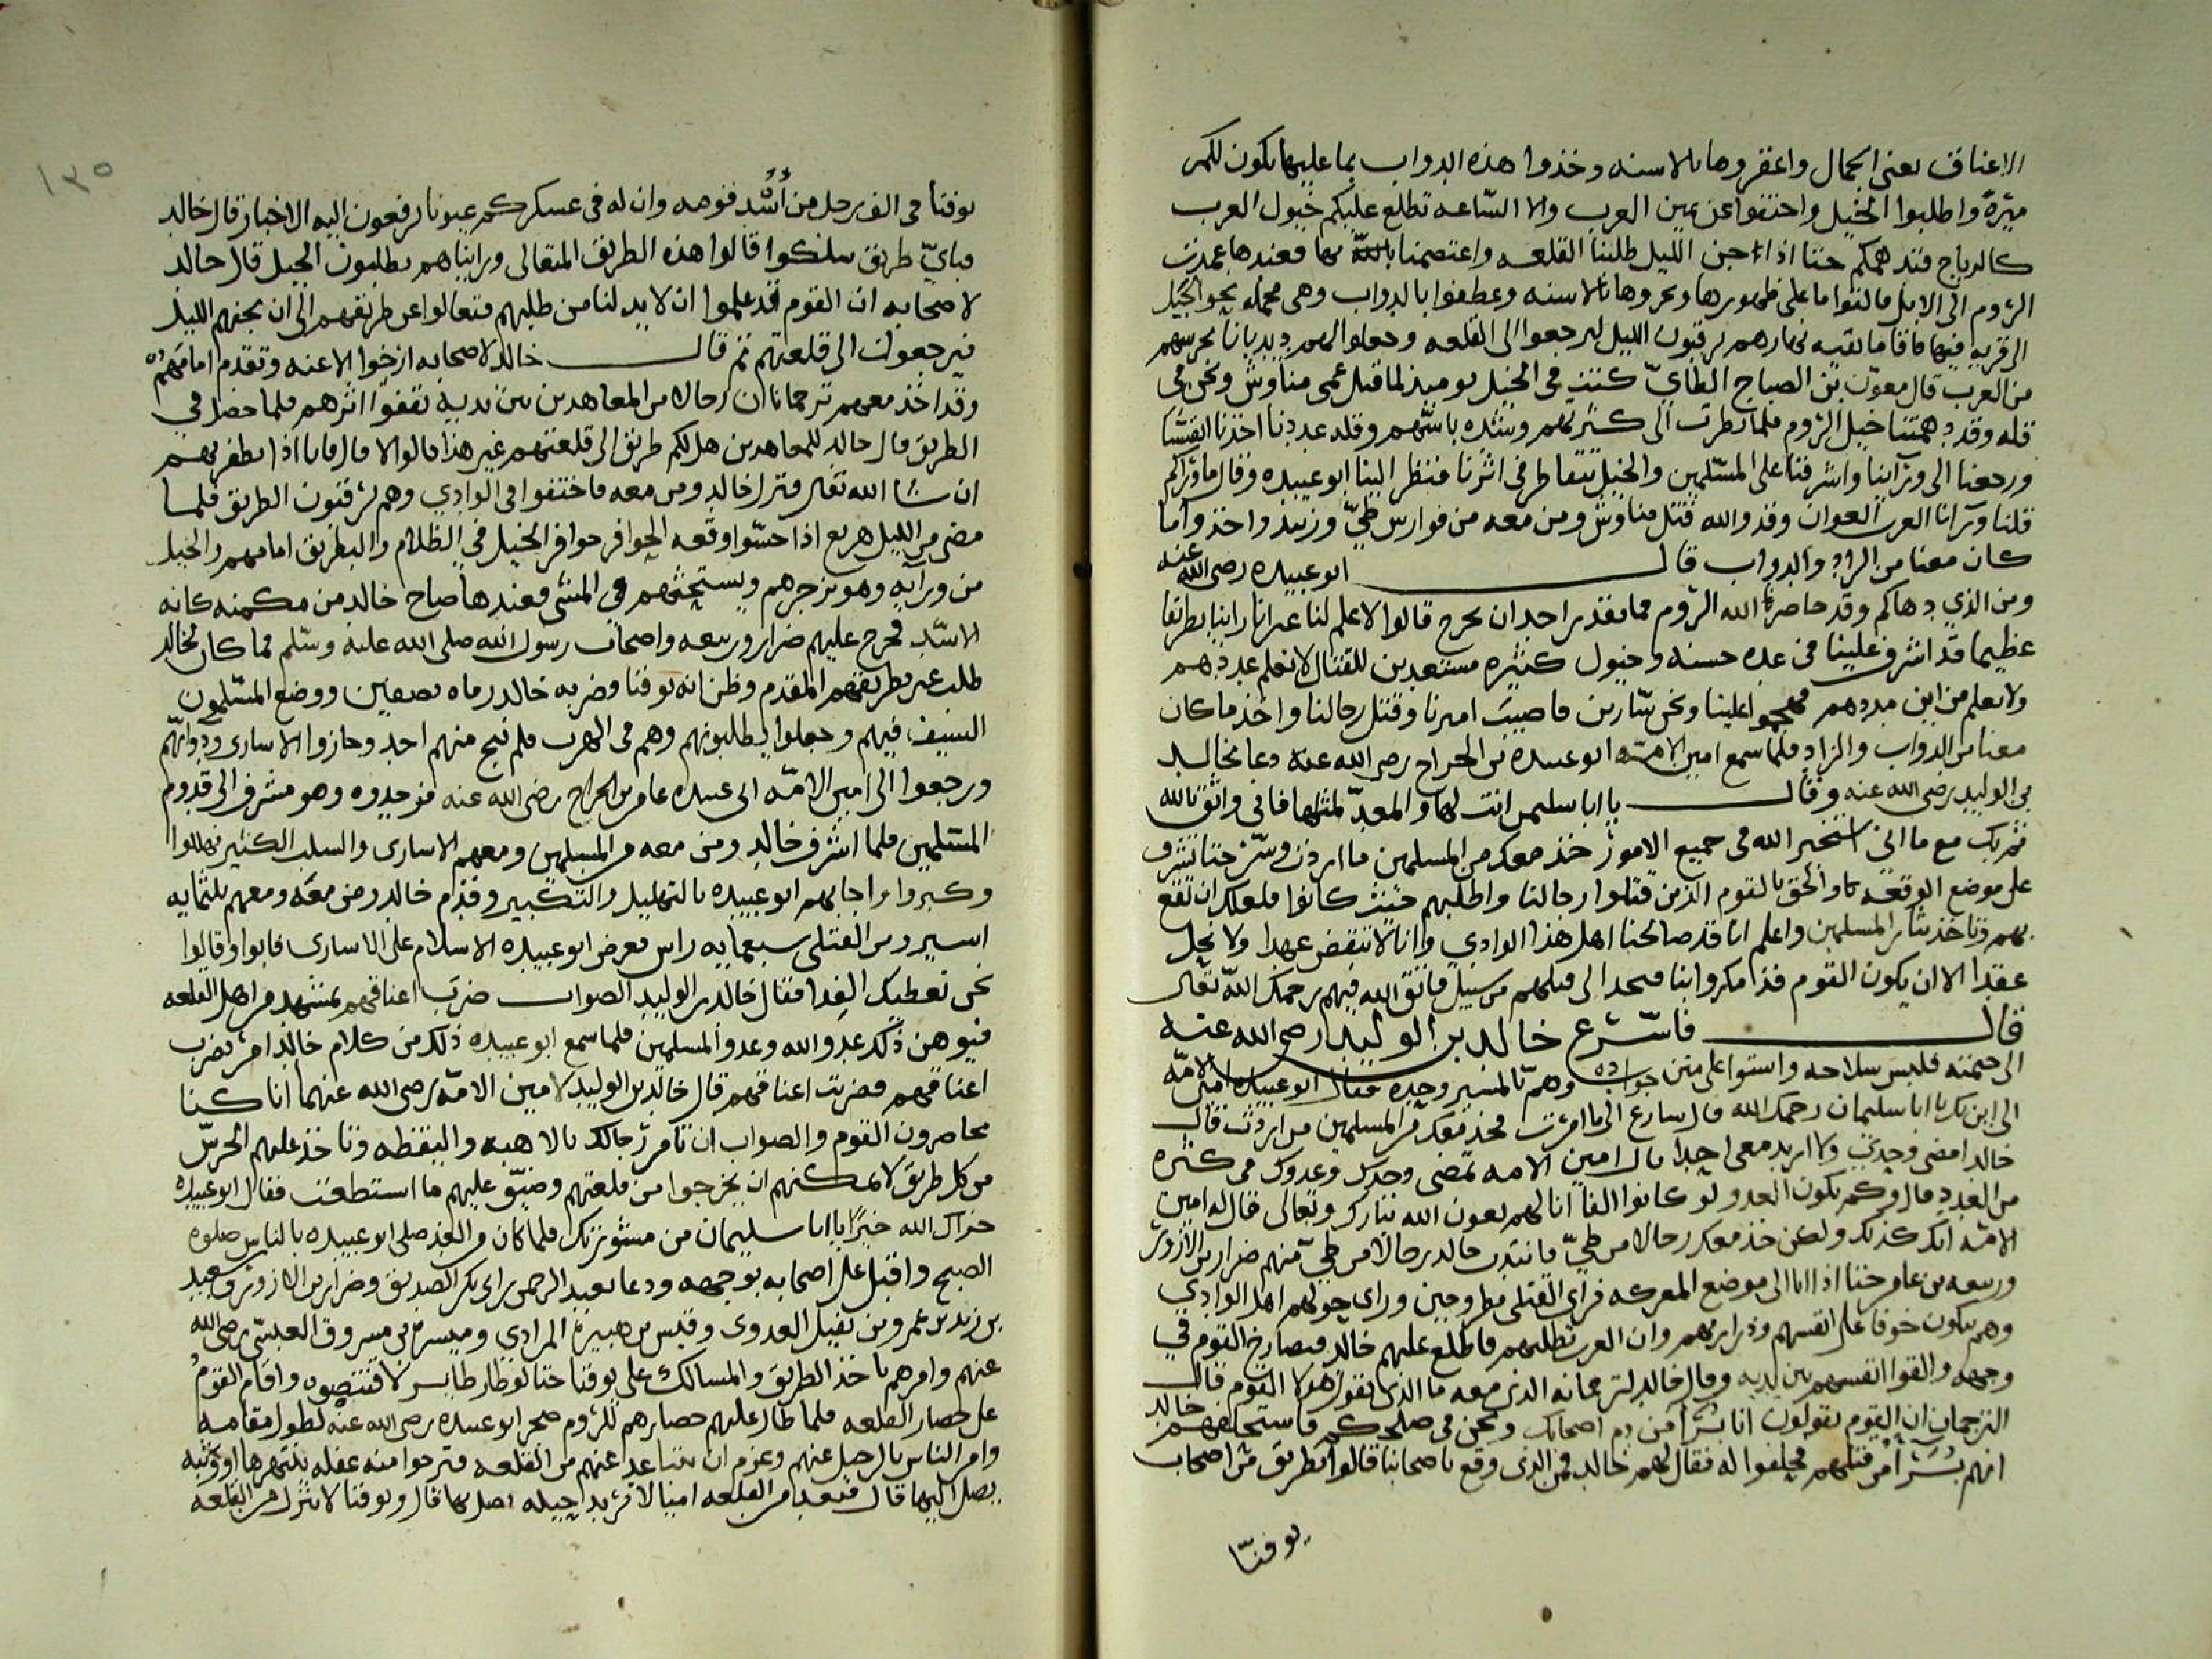 الاعناق يعني الجمال واعقروها بالاسنه وخذوا هذه الدواب بما عليها يكون لكم
ميرة واطلبوا الجبل واختفوا عن عين العرب والا الساعه تطلع عليكم خيول العرب
كالرياح فتدهمكم حتا اذا جن الليل طلبنا القلعه واعتصمنا بها فعندها عمدت
الروم الى الابل فالقوا ما على ظهورها ونحروها بالاسنه وعطفوا بالدواب وهي محمله نحو الجبل
الى قريه فيها فاقاموا بقيه نهارهم يرقبون الليل ليرجعوا الى القلعه وجعلوا لهم ديدبانا يحرسهم
من العرب قال معوّن بن الصباح الطاي كنت في الخيل يوميذ لما قتل عمي مناوش ونحن في
قله وقد دهمتنا خيل الروم فلما نظرت الى كثرتهم وشده باسهم وقله عددنا اخذنا
ورجعنا الى ورآينا واشرفنا على المسلمين والخيل تتقاطر في اثرنا فنظر الينا ابو عبيده وقال ما وراكم
قلنا ورآنا العرب العوان وقد والله قتل مناوش ومن معه من فوارس طيّ وزبيد واخذوا ما
كان معنا من الزاد والدواب قال ابو عبيده رضي الله عنه
ومن الذي دهاكم وقد حاصر الله الروم فما يقدر احد ان يخرج قالوا لا علم لنا غير انا راينا بطريقا
عظيما قد اشرف علينا في عده حسنه وخيول كثيره مستعدين للقتال لا نعلم عددهم
ولا نعلم من اين مددهم فهجموا علينا ونحن سايرين فاصيب اميرنا وقتل رجالنا واخذ ما كان
معنا من الدواب والزاد فلما سمع امين الامّه ابو عبيده بن الجراح رضي الله عنه دعا بخالد
بن الوليد رضي الله عنه وقال يا ابا سليمن انت لها والمعدّ لمثلها فاني واثق بالله
ثم بك مع ما اني استخير الله في جميع الامور خذ معك من المسلمين ما اردت وسر حتا تشرف
على موضع الوقعه والحق بالقوم الذين قتلوا رجالنا واطلبهم حيث كانوا فلعلك ان تقع
بهم وتاخذ بثار المسلمين واعلم انا قد صالحنا اهل هذا الوادي وانا لا ننقض عهدا ولا نحل
عقدا الا ان يكون القوم قد مكروا بنا فنجد الى قتلهم من سبيل فاتق الله فيهم رحمك الله تعالى
قال فاسّرع خالد بن الوليد رضي الله عنه
الى خيمته فلبس سلاحه واستوا على متن جواده وهمّ بالمسير وحده فقال ابو عبيده امين الامّه
الى اين يا ابا سليمان رحمك الله قال سارع الى ما امرت فخذ معك من المسلمين من اردت قال
خالد امضي وحدي ولا اريد معي احدا قال امين الامه تمضي وحدك وعدوك في كثره
من العدد قال وكم يكون العدو لو كانوا الفا انا لهم بعون الله تبارك وتعالى قال له امين
الامّه انك كذلك ولكن خذ معك رجالا من طيّ فانتدب خالد رجالا من طيّ منهم ضرار بن الازور
وربيعه بن عامر حتا اذا اتا الى موضع المعركه فراى القتلى مطروحين وراى حولهم اهل الوادي
وهم يبكون خوفا على انفسهم وذراريهم وان العرب تطلبهم فاطلع عليهم خالد فتصارخ القوم في
وجهه والقوا انفسهم بين يديه وقال خالد لترجمانه الذي معه ما الذي يقول هولا القوم قال
الترجمان ان القوم يقولون انا بُرَآ من دم اصحابك ونحن في صلحكم فاستحلفهم خالد
انهم بُرَآ من قتلهم فحلفوا له فقال لهم خالد فمن الذي وقع باصحابنا قالوا بطريق من اصحاب
يوقنّا
١٣٥
يوقنا في الف رجل من أشد قومه وان له في عسكركم عيونا يرفعون اليه الاخبار قال خالد
فبايّ طريق سلكوا قالوا هذه الطريق المتعالى وراينناهم يطلبون الجبل قال خالد
لاصحابه ان القوم قد علموا ان لا بد لنا من طلبهم فتعالوا عن طريقهم الى ان يجنهم الليل
فيرجعون الى قلعتهم ثم قال خالد لاصحابه ارخوا الاعنه وتقدم امامهم
وقد اخذ معهم ترجمانا ورجالا من المعاهدين بين يديه تقفوا اثرهم فلما حصل في
الطريق قال خالد للمعاهدين هل لكم طريق الى قلعتهم غير هذا قالوا لا قال فانا اذا نظفر بهم
ان شا الله تعالى فنزل خالد ومن معه فاختفوا في الوادي وهم يرقبون الطريق فلما
مضى من الليل هزيع اذا حسّوا وقعه الحوافر حوافر الخيل في الظلام والبطريق امامهم والخيل
من ورآيه وهو يزجرهم ويستحثهم في المشي فعندها صاح خالد من مكمنه كانه
الاسد فخرج عليهم ضرار وربيعه واصحاب رسول الله صلى الله عليه وسّلم فما كان لخالد
طلب غير بطريقهم المقدم وظن انه يوقنا وضربه خالد رماه نصفين ووضع المسلمون
السيف فيهم وجعلوا يطلبونهم وهم في الهرب فلم ينج منهم احد وحازوا الاسارى ودوابّهم
ورجعوا الى امين الامّه ابي عبيده عامر بن الجراح رضي الله عنه فوجدوه وهو مشرف الى قدوم
المسلمين فلما اشرف خالد ومن معه من المسلمين ومعهم الاسارى والسلب الكثير فهللوا
وكبروا واجابهم ابو عبيده بالتهليل والتكبير وقدم خالد ومن معه ومعهم ثلثمايه
اسير ومن القتلى سبعمايه راس فعرض ابو عبيده الاسلام على الاسارى فابوا وقالوا
نحن نعطيك الفدا فقال خالد بن الوليد الصواب ضرب اعناقهم بمشهد من اهل القلعه
فيوهن ذلك عدو الله وعدو المسلمين فلما سمع ابو عبيده ذلك من كلام خالد امر بضرب
اعناقهم فضربت اعناقهم قال خالد بن الوليد لامين الامّه رضي الله عنهما انا كنا
محاصرون القوم والصواب ان تامر رجالك بالاهبه واليقظه وتاخذ عليهم الحرسّ
من كل طريق لا يمكنهم ان يخرجوا من قلعتهم وضيّق عليهم ما استطعت فقال ابو عبيده
جزاك الله خيرًا يا ابا سليمان من مشورتك فلما كان من الغد صلى ابو عبيده بالناس صلوه
الصبح واقبل على اصحابه بوجهه ودعا بعبد الرحمن بن ابي بكر الصديق وضرار بن الازور وسعيد
بن زيد بن عمرو بن نفيل العدوي وقيس بن هبيرة المرادي وميسره بن مسروق العبسّي رضي الله
عنهم وامرهم باخذ الطريق والمسالك على يوقنا حتا لو طار طاير لاقتنصوه واقام القوم
على حصار القلعه فلما طال عليهم حصارهم للروم ضجر ابو عبيده رضي الله عنه لطول مقامه
وامر الناس بالرحيل عنهم وعزم ان يتباعد عنهم من القلعه فترجوا منه غفله ينتهزها او وثبه
يصل اليها قال فبعد من القلعه اميالا يريد حيله يصل بها قال ويوقنا لا ينزل من القلعه